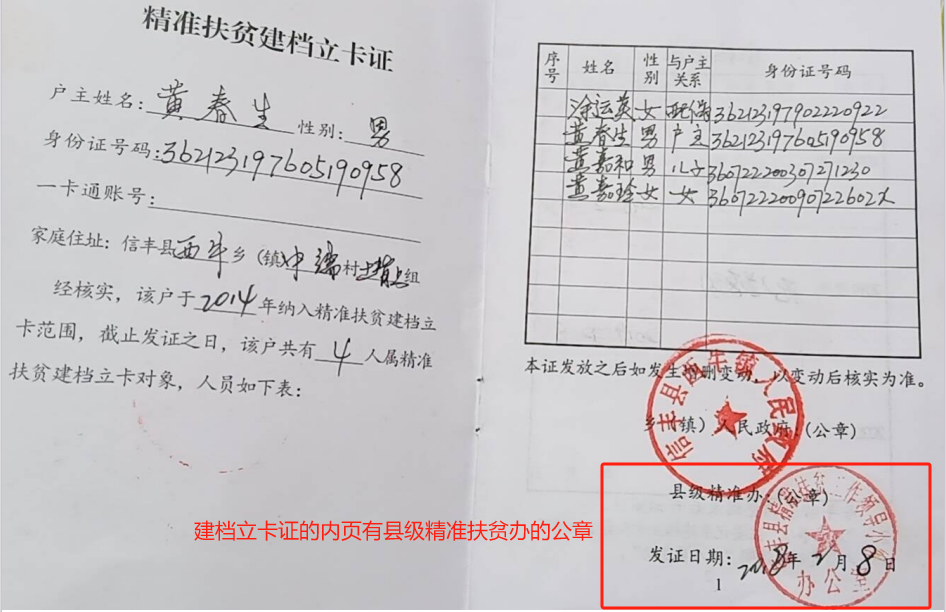 精准扶贫建档立卡证
户主姓名：黄春生 性别：男
身份证号码：362123197605190958
一卡通账号：
家庭住址：信丰县西牛乡（镇）中端村组
经核实，该户于2014年纳入精准扶贫建档立
卡范围，截止发证之日，该户共有4人属精准
扶贫建档立卡对象，人员如下表：
序号 姓名 性别 与户主关系 身份证号码
涂运英 女 配偶 362123197902220922
黄春生 男 户主 362123197605190958
黄嘉和 男 儿子 360722200307271230
黄嘉玲 女 女 36072220090722602X
本证发放之后如发生增删变动，以变动后核实为准。
乡（镇）人民政府：（公章）
信丰县西牛镇人民政府
县级精准办：（公章）
信丰县精准扶贫工作领导小组
办公室
发证日期：2018年2月8日
1
建档立卡证的内页有县级精准扶贫办的公章